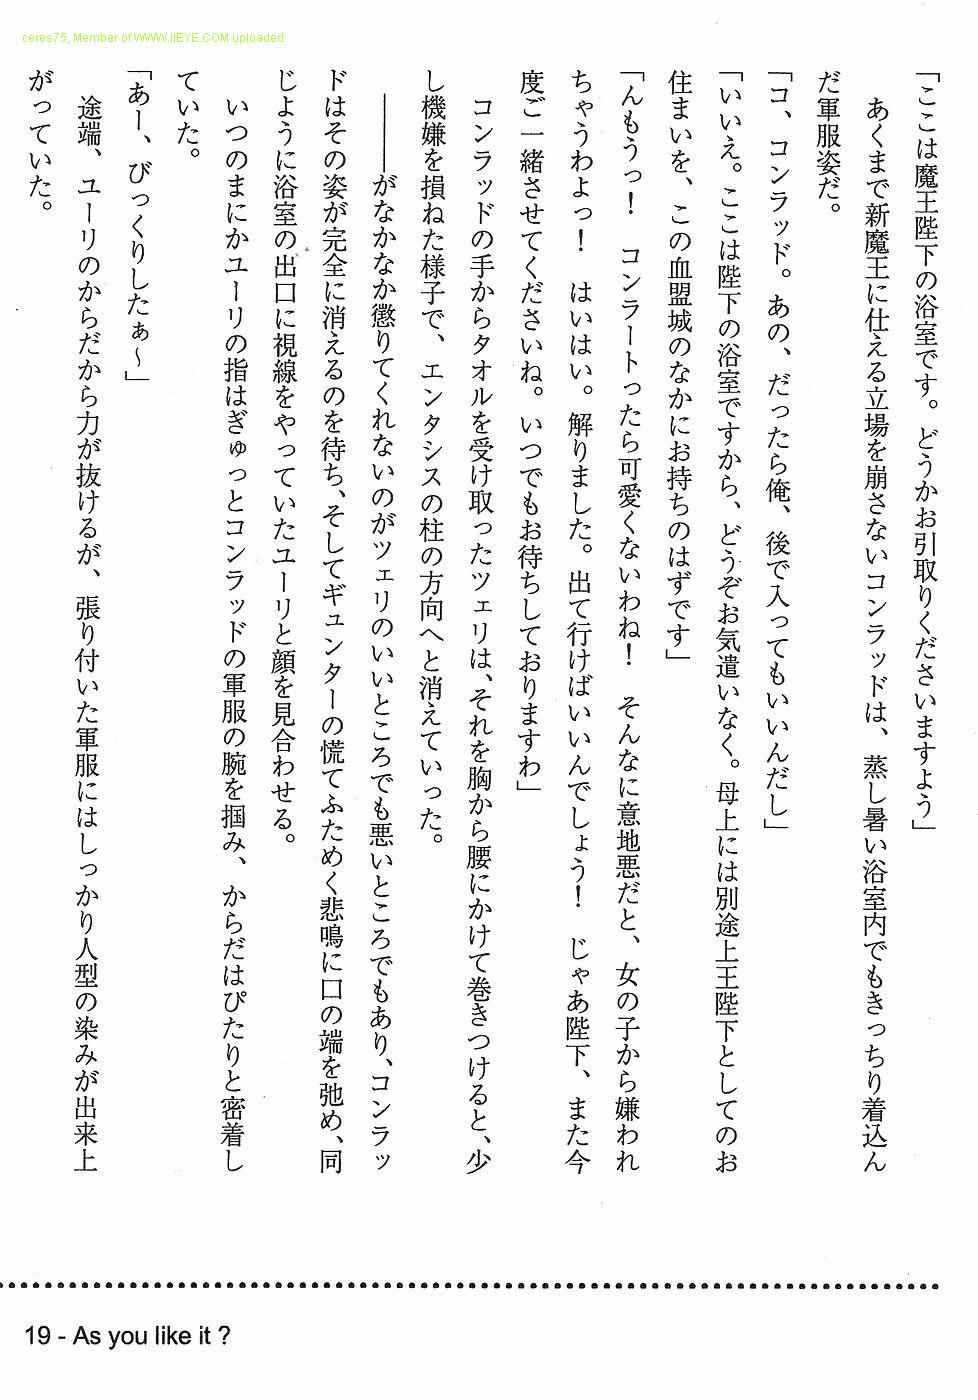 ceres75, Member of WWW.IIEYE.COM uploaded
「ここは魔王陛下の浴室です。どうかお引取りくださいますよう」
あくまで新魔王に仕える立場を崩さないコンラッドは、蒸し暑い浴室内でもきっちり着込ん
だ軍服姿だ。
「コ、コンラッド。あの、だったら俺、後で入ってもいいんだし」
「いいえ。ここは陛下の浴室ですから、どうぞお気遣いなく。母上には別途上王陛下としてのお
住まいを、この血盟城のなかにお持ちのはずです」
「んもうっ！　コンラートったら可愛くないわね！　そんなに意地悪だと、女の子から嫌われ
ちゃうわよっ！　はいはい。解りました。出て行けばいいんでしょう！　じゃあ陛下、また今
度ご一緒させてくださいね。いつでもお待ちしておりますわ」
コンラッドの手からタオルを受け取ったツェリは、それを胸から腰にかけて巻きつけると、少
し機嫌を損ねた様子で、エンタシスの柱の方向へと消えていった。
――がなかなか懲りてくれないのがツェリのいいところでも悪いところでもあり、コンラッ
ドはその姿が完全に消えるのを待ち、そしてギュンターの慌てふためく悲鳴に口の端を弛め、同
じように浴室の出口に視線をやっていたユーリと顔を見合わせる。
いつのまにかユーリの指はぎゅっとコンラッドの軍服の腕を掴み、からだはぴたりと密着し
ていた。
「あー、びっくりしたぁ～」
途端、ユーリのからだから力が抜けるが、張り付いた軍服にはしっかり人型の染みが出来上
がっていた。
19 - As you like it ?